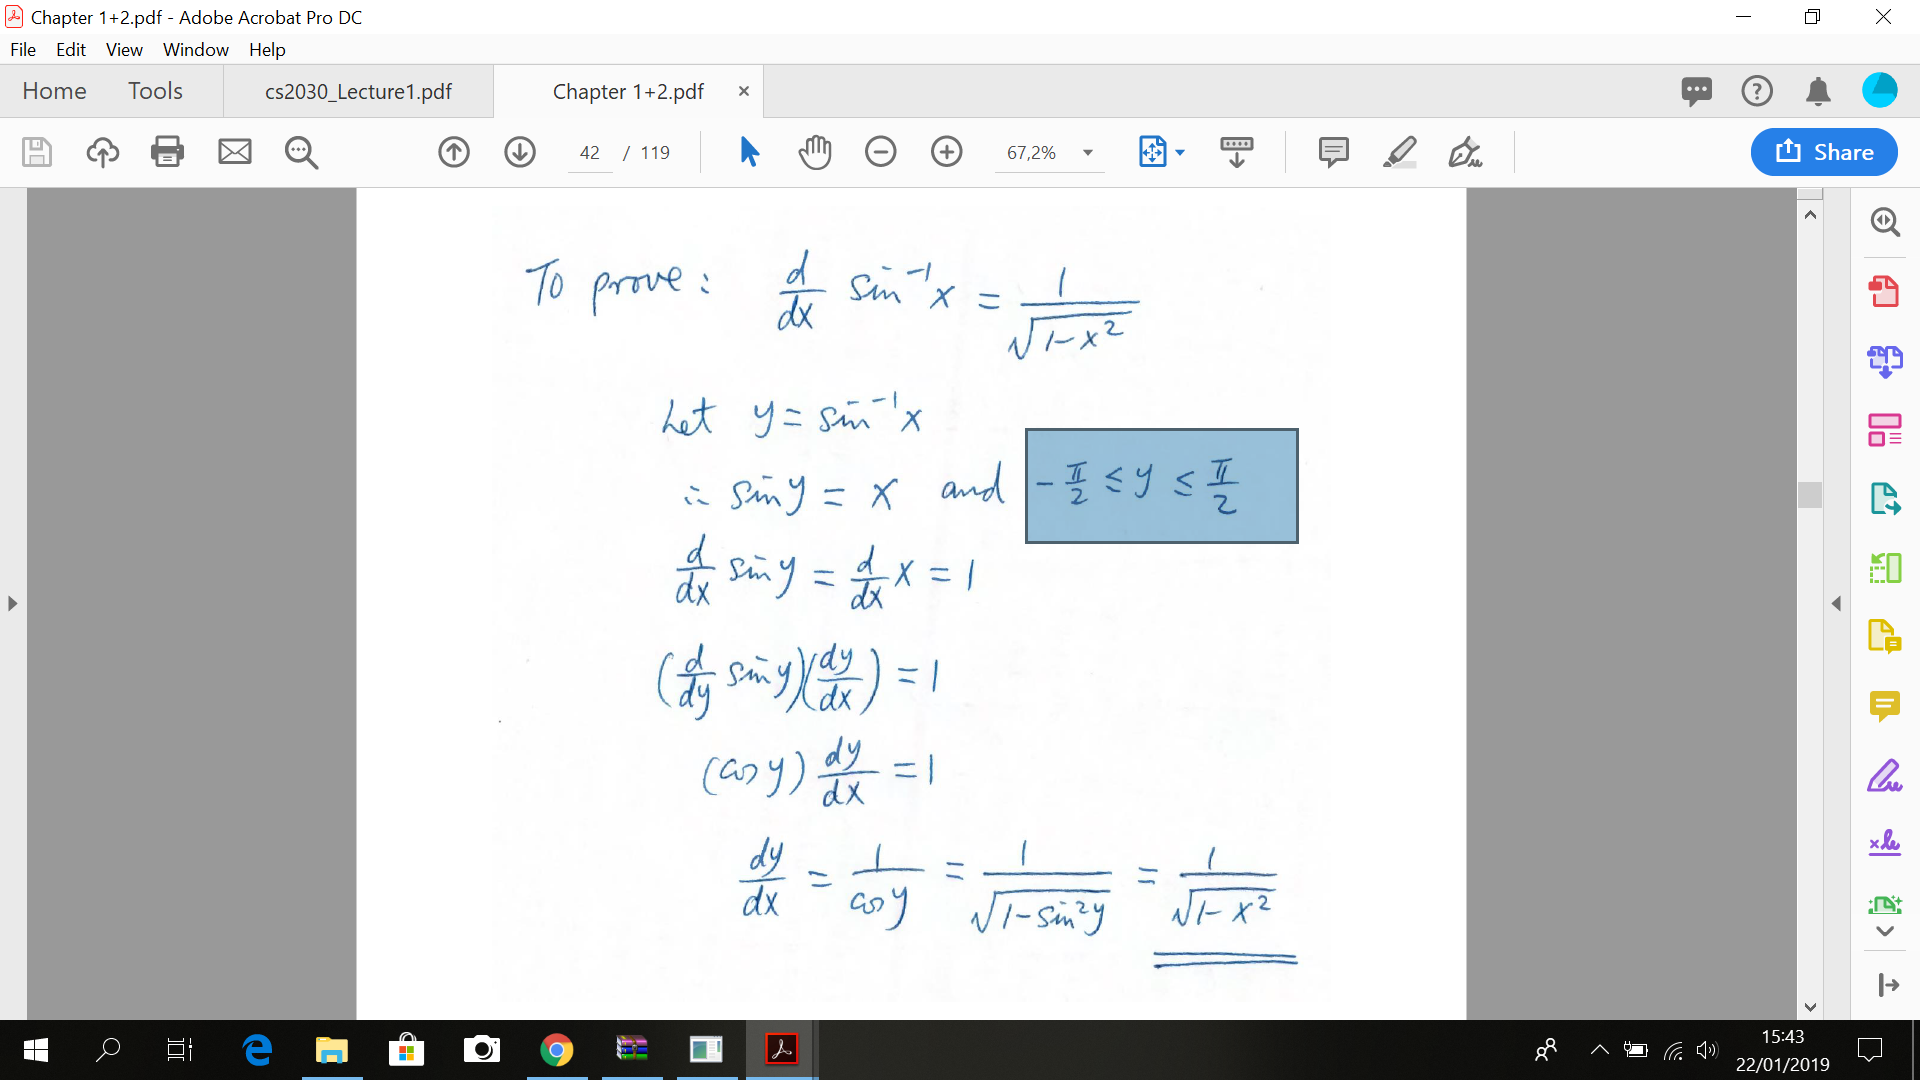 Chapter 1+2.pdf - Adobe Acrobat Pro DC
File Edit View Window Help
Home Tools cs2030_Lecture1.pdf Chapter 1+2.pdf ×
42 / 119 67,2% Share
To prove: d/dx sin⁻¹x = 1/√(1-x²)
Let y = sin⁻¹x
∴ sin y = x and -π/2 ≤ y ≤ π/2
d/dx sin y = d/dx x = 1
(d/dy sin y)(dy/dx) = 1
(cos y) dy/dx = 1
dy/dx = 1/cos y = 1/√(1-sin²y) = 1/√(1-x²)
15:43
22/01/2019